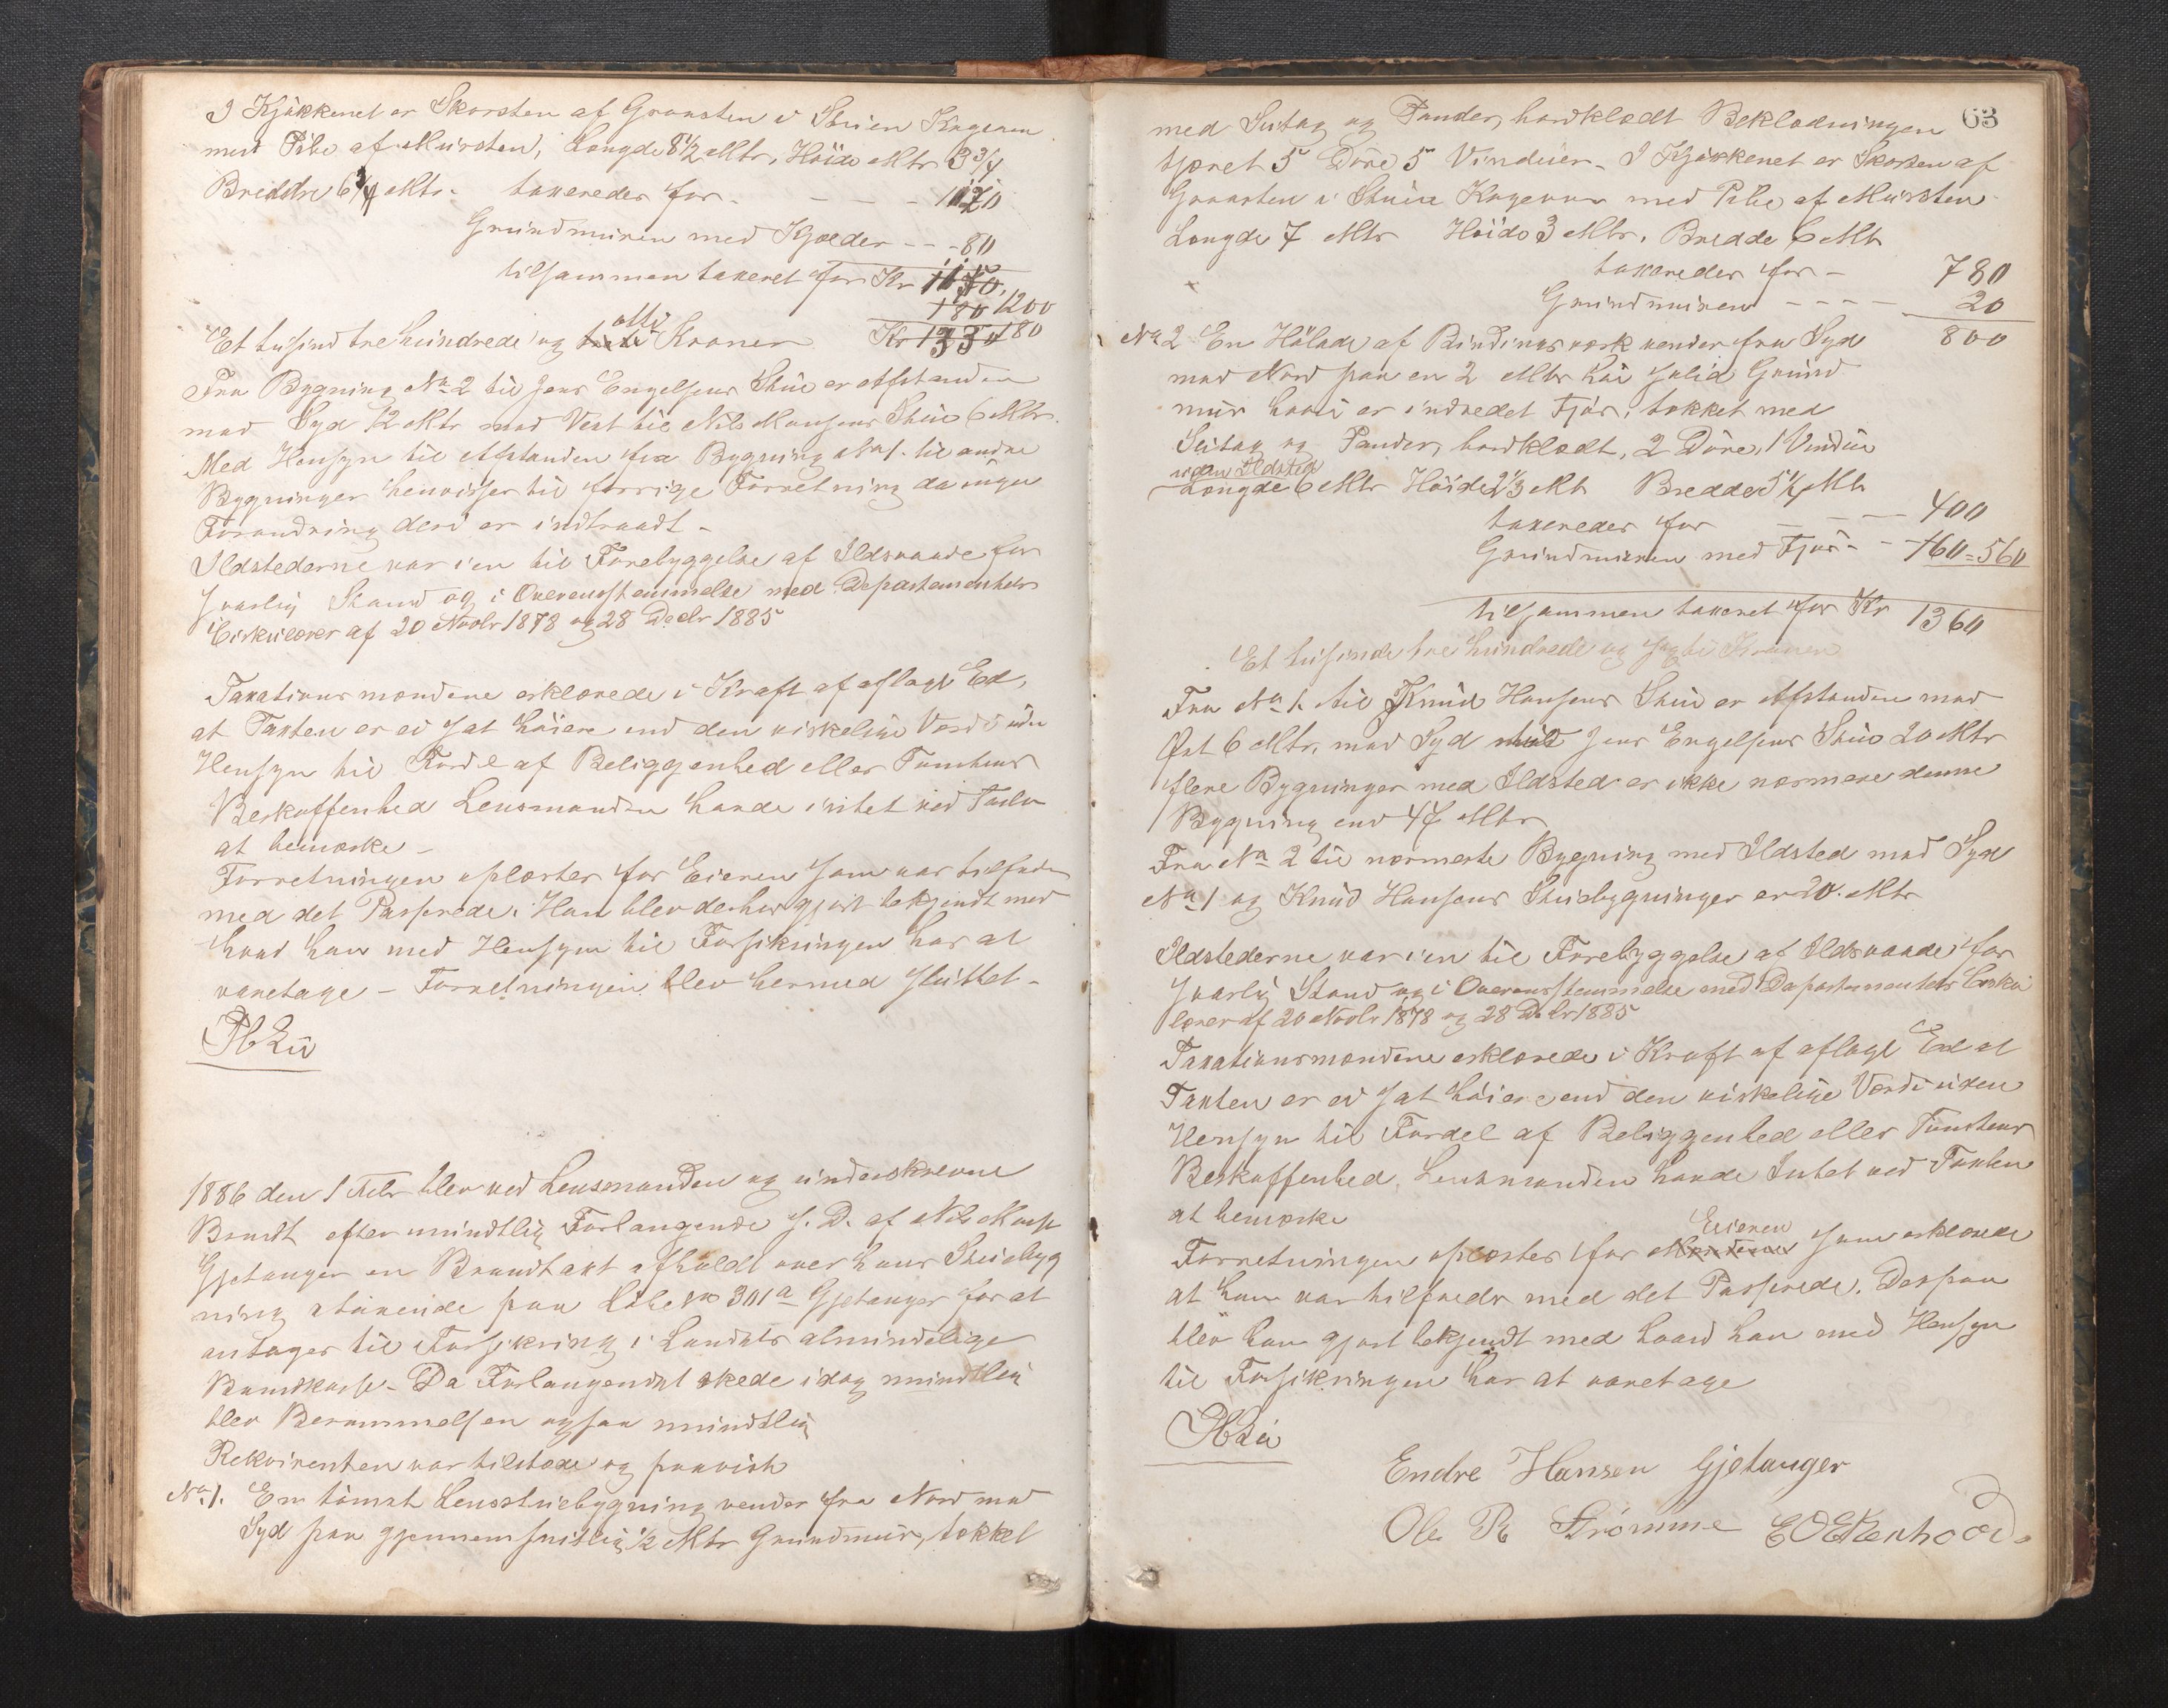 I Kjøkkenet er Skorsten af Graasten i Stuen Kogeovn
med Pibe af Mursten, Længde 8 1/2 Mtr, Høide Mtr 3 3/4
Bredde 6 3/4 Mtr. taxeredes for - - - 1120
Grundmuren med Kjælder - - - 80
tilsammen taxeret for Kr 1200
180 1200
Et tusind tre hundrede og otti Kroner Kr 1380 180
Fra Bygning No 2 til Jens Engelsens Stue er Afstanden
mod Syd 12 Mtr mod Vest til Nils Monsens Stue 6 Mtr.
Med Hensyn til Afstanden fra Bygning No 1. til andre
Bygninger henvises til forrige Forretning da ingen
Forandring deri er indtraadt -
Ildstederne var i en til Forebyggelse af Ildsvaade for
svarlig Stand og i Overensstemmelse med Departementets
Cirkulærer af 20 Novbr 1878 og 28 Decbr 1885
Taxationsmændene erklærede i Kraft af aflagt Ed,
at Taxten er ei sat høiere end den virkelige Værdi uden
Hensyn til Fordel af Beliggenhed eller Tomtens
Beskaffenhed Lensmanden havde intet ved Taxten
at bemærke -
Forretningen oplæstes for Eieren som var tilfreds
med det Passerede. Han blev derhos gjort bekjendt med
hvad han med Hensyn til Forsikringen har at
varetage - Forretningen blev hermed sluttet -
1886 den 1 Febr blev ved Lensmanden og underskrevne
Mænd efter mundtlig Forlangende s. D. af Nils Monsen
Gjetanger en Brandtaxt afholdt over hans Stuebyg
ning staaende paa Løbe No 301a Gjetanger for at
antages til Forsikring i Landets almindelige
Brandkasse - Da Forlangendet skede idag mundtlig
blev Berammelsen ogsaa mundtlig
Rekvirenten var tilstede og paaviste
No 1. En tømret Lensstuebygning vender fra Nord mod
Syd paa gjennemsnitlig 1/2 Mtr Grundmur, tækket
63
med Sutag og Pander, bordklædt Beklædningen
tjæret 5 Døre 5 Vinduer - I Kjøkkenet er Skorsten af
Graasten i Stuen Kogeovn med Pibe af Mursten
Længde 7 Mtr Høide 3 Mtr. Bredde 6 Mtr
taxeredes for - 780
Grundmuren - - - - 20
No 2 En Hølade af Bindingsværk vender fra Syd 800
mod Nord paa en 2 Mtr høi solid Grund
mur hvori er indredet Fjøs, tækket med
Sutag og Pander, bordklædt, 2 Døre, 1 Vindue
uden Ildsted
Længde 6 Mtr Høide 2 1/3 Mtr Bredde 5 1/2 Mtr
taxeredes for - - - 400
Grundmuren med Fjøs - - 160 = 560
tilsammen taxeret for Kr 1360
Et tusinde tre hundrede og sexti Kroner
Fra No 1. til Knud Hansens Stue er Afstanden mod
Øst 6 Mtr, mod Syd til Jens Engelsens Stue 20 Mtr
flere Bygninger med Ildsted er ikke nærmere denne
Bygning end 47 Mtr
Fra No 2 til nærmeste Bygning med Ildsted mod Syd
No 1 og Knud Hansens Stuebygninger er 20. Mtr
Ildstederne var i en til Forebyggelse af Ildsvaade for
svarlig Stand og i Overensstemmelse med Departementets Cirku
lærer af 20 Novbr 1878 og 28 Decbr 1885
Taxationsmændene erklærede i Kraft af aflagt Ed at
Taxten er ei sat høiere end den virkelige Værdi uden
Hensyn til Fordel af Beliggenhed eller Tomtens
Beskaffenhed. Lensmanden havde Intet ved Taxten
at bemærke
Eieren
Forretningen oplæstes for som erklærede
at han var tilfreds med det Passerede. Derpaa
blev han gjort bekjendt med hvad han med Hensyn
til Forsikringen har at varetage
Endre Hansen Gjetanger
Ole P. Strømme